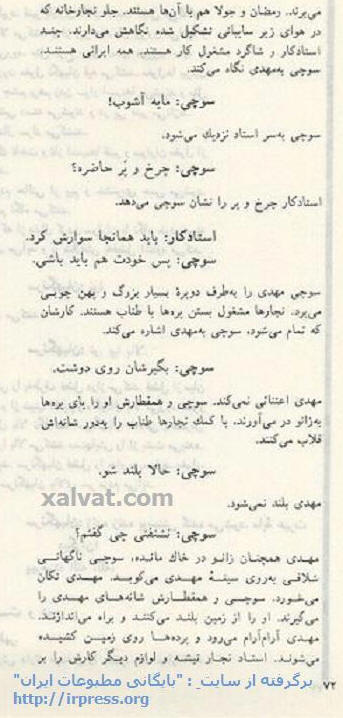 می‌برند. رمضان و جولا هم با آن‌ها هستند. جلو نجارخانه که
در هوای زیر سایبانی تشکیل شده نگاهش می‌دارند. چند
استادکار و شاگرد مشغول کار هستند. همه ایرانی هستند.
سوچی به‌مهدی نگاه می‌کند.
سوچی: مایه آشوب!
سوچی به‌سر استاد نزدیك می‌شود.
سوچی: چرخ و پر حاضره؟
استادکار چرخ و پر را نشان سوچی می‌دهد.
استادکار: باید همانجا سوارش کرد.
سوچی: پس خودت هم باید باشی.
سوچی مهدی را به‌طرف دوپرهٔ بسیار بزرگ و پهن چوبی
می‌برد. نجارها مشغول بستن پره‌ها با طناب هستند. کارشان
که تمام می‌شود، سوچی به‌مهدی اشاره می‌کند.
سوچی: بگیرشان روی دوشت.
مهدی اعتنائی نمی‌کند. سوچی و همقطارش او را پای پره‌ها
به‌زانو در می‌آورند. با کمك نجارها طناب را به‌دور شانه‌اش
قلاب می‌کنند.
سوچی: حالا بلند شو.
xalvat.com
مهدی بلند نمی‌شود.
سوچی: نشنفتی چی گفتم؟
مهدی همچنان زانو در خاك مانده، سوچی ناگهانی
شلاقی به‌روی سینهٔ مهدی می‌کوبد. مهدی تکان
می‌خورد. سوچی و همقطارش شانه‌های مهدی را
می‌گیرند. او را از زمین بلند می‌کنند و براه می‌اندازند.
مهدی آرام‌آرام می‌رود و پرده‌ها روی زمین کشیده
می‌شوند. استاد نجار تیشه و لوازم دیگر کارش را بر
۷۲
برگرفته از سایت : "بایگانی مطبوعات ایران"
http://irpress.org